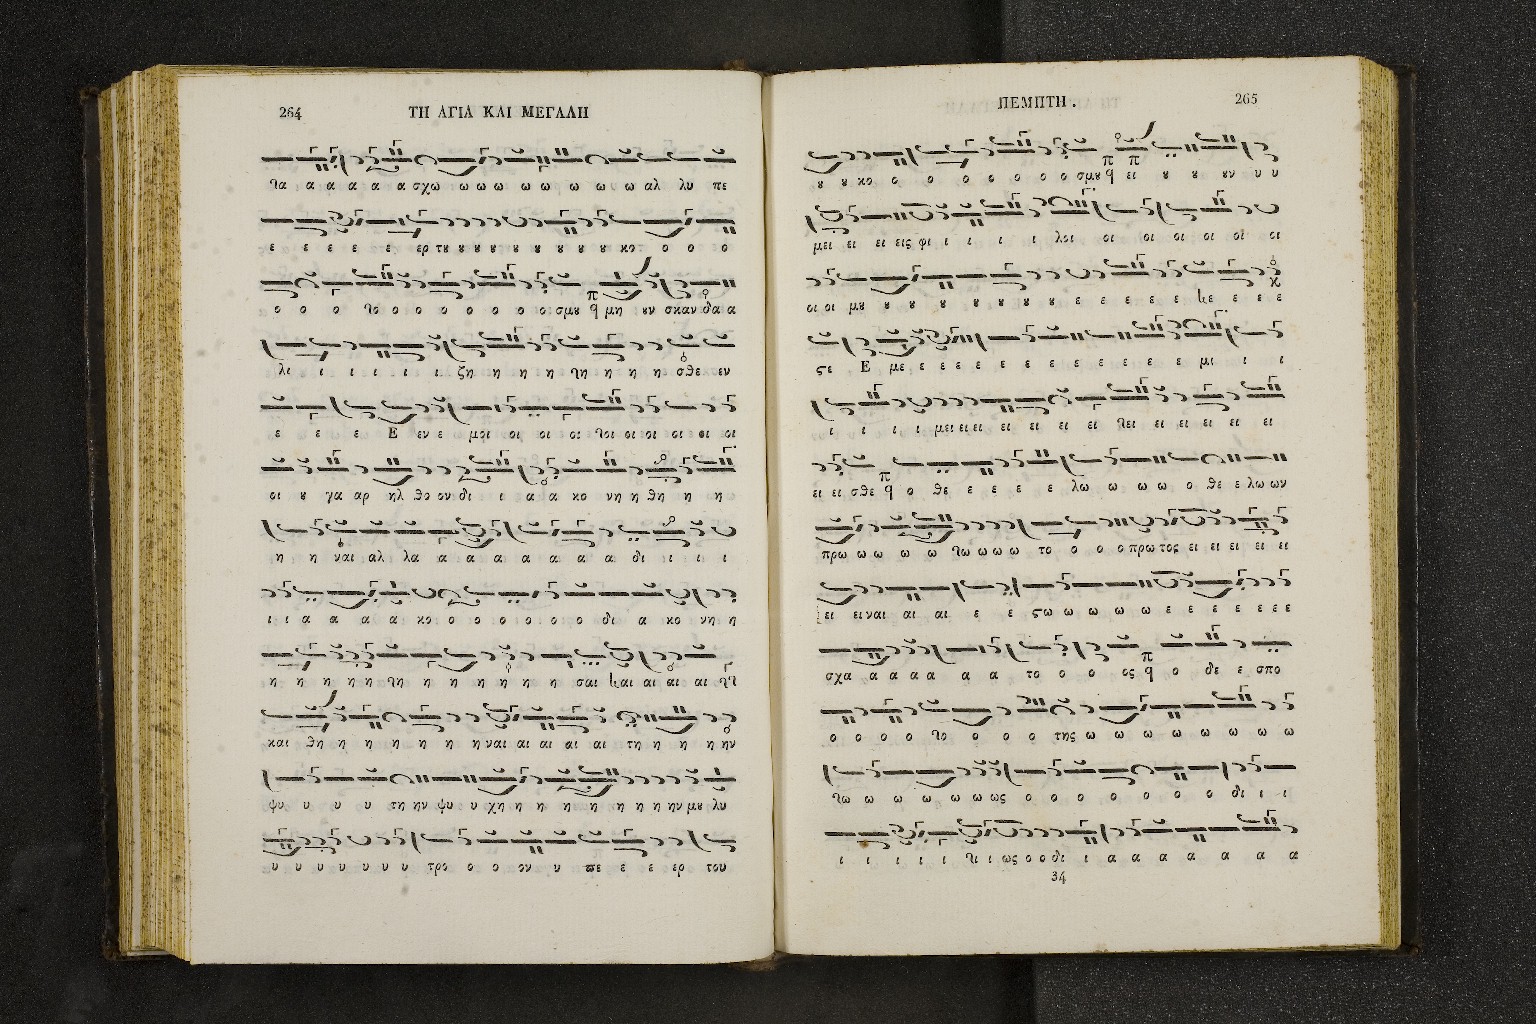 264 ΤΗ ΑΓΙΑ ΚΑΙ ΜΕΓΑΛΗ
α α α α α σχω ω ω ω ω ω ω ω ω αλ λυ πε
ε ε ε ε ε ερ τȣ ȣ ȣ ȣ ȣ ȣ ȣ ȣ ȣ κο ο ο ο
ο ο ο ο ο ο ο ο ο ο σμȣ μη ȣν σκαν δα α
λι ι ι ι ι ι ζη η η η η η η η σθε εν
ε ε ε Ε εν ε μοι οι οι οι οι οι οι οι οι
οι ȣ γα αρ ηλ θο ον δι ι α α κο νη η θη η η
η η ναι αλ λα α α α α α α α α δι ι ι ι
ι ι α α α α κο ο ο ο ο ο ο ο δι α κο νη η
η η η η η η η η η η η σαι αι αι αι
και θη η η η η η η η ναι αι αι αι αι τη η η η ην
ψυ υ υ υ υ τη ην ψυ υ χη η η η η η η η ην μȣ λυ
υ υ υ υ υ υ υ τρο ο ο ο ον υ πε ε ε ερ του
ΠΕΜΠΤΗ . 265
ȣ ȣ κο ο ο ο ο ο ο ο σμȣ ει ȣ ȣ ȣν υ υ
μει ει ει εις φι ι ι ι ι λοι οι οι οι οι οι οι
οι οι μȣ ȣ ȣ ȣ ȣ ȣ ȣ ȣ ȣ ε ε ε ε ε ε ε ε
ςε Ε με ε ε ε ε ε ε ε ε ε ε ε ε μι ι ι
ι ι ι ι μει ει ει ει ει ει ει ει ει ει ει ει
ει ει σθε ο θε ε ε ε ε λω ω ω ω ο θε ε λω ων
πρω ω ω ω ω ω ω ω το ο ο ο πρω τος ει ει ει ει ει
ει ει ναι αι αι ε ε ςω ω ω ω ω ε ε ε ε ε ε ε
σχα α α α α α α το ο ο ος ο δε ε σπο
ο ο ο ο ο ο ο ο της ω ω ω ω ω ω ω ω
ω ω ω ω ω ω ως ο ο ο ο ο ο ο δι ι ι
ι ι ι ι ι ι ι ως ο ο δι ι α α α α α α α α
34